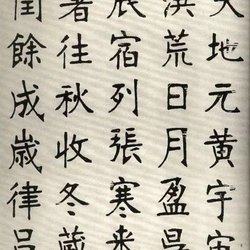 天地元黃宇宙
洪荒日月盈昃
辰宿列張寒来
暑往秋收冬藏
閏餘成歲律呂